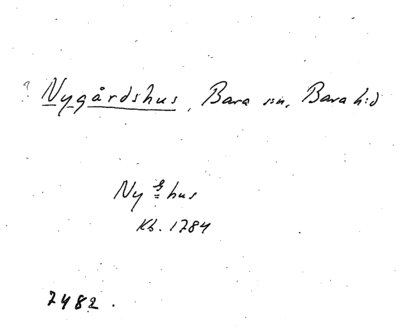 ? Nygårdshus, Bara sn, Bara hd
Ny hus
Kb. 1784
7482.